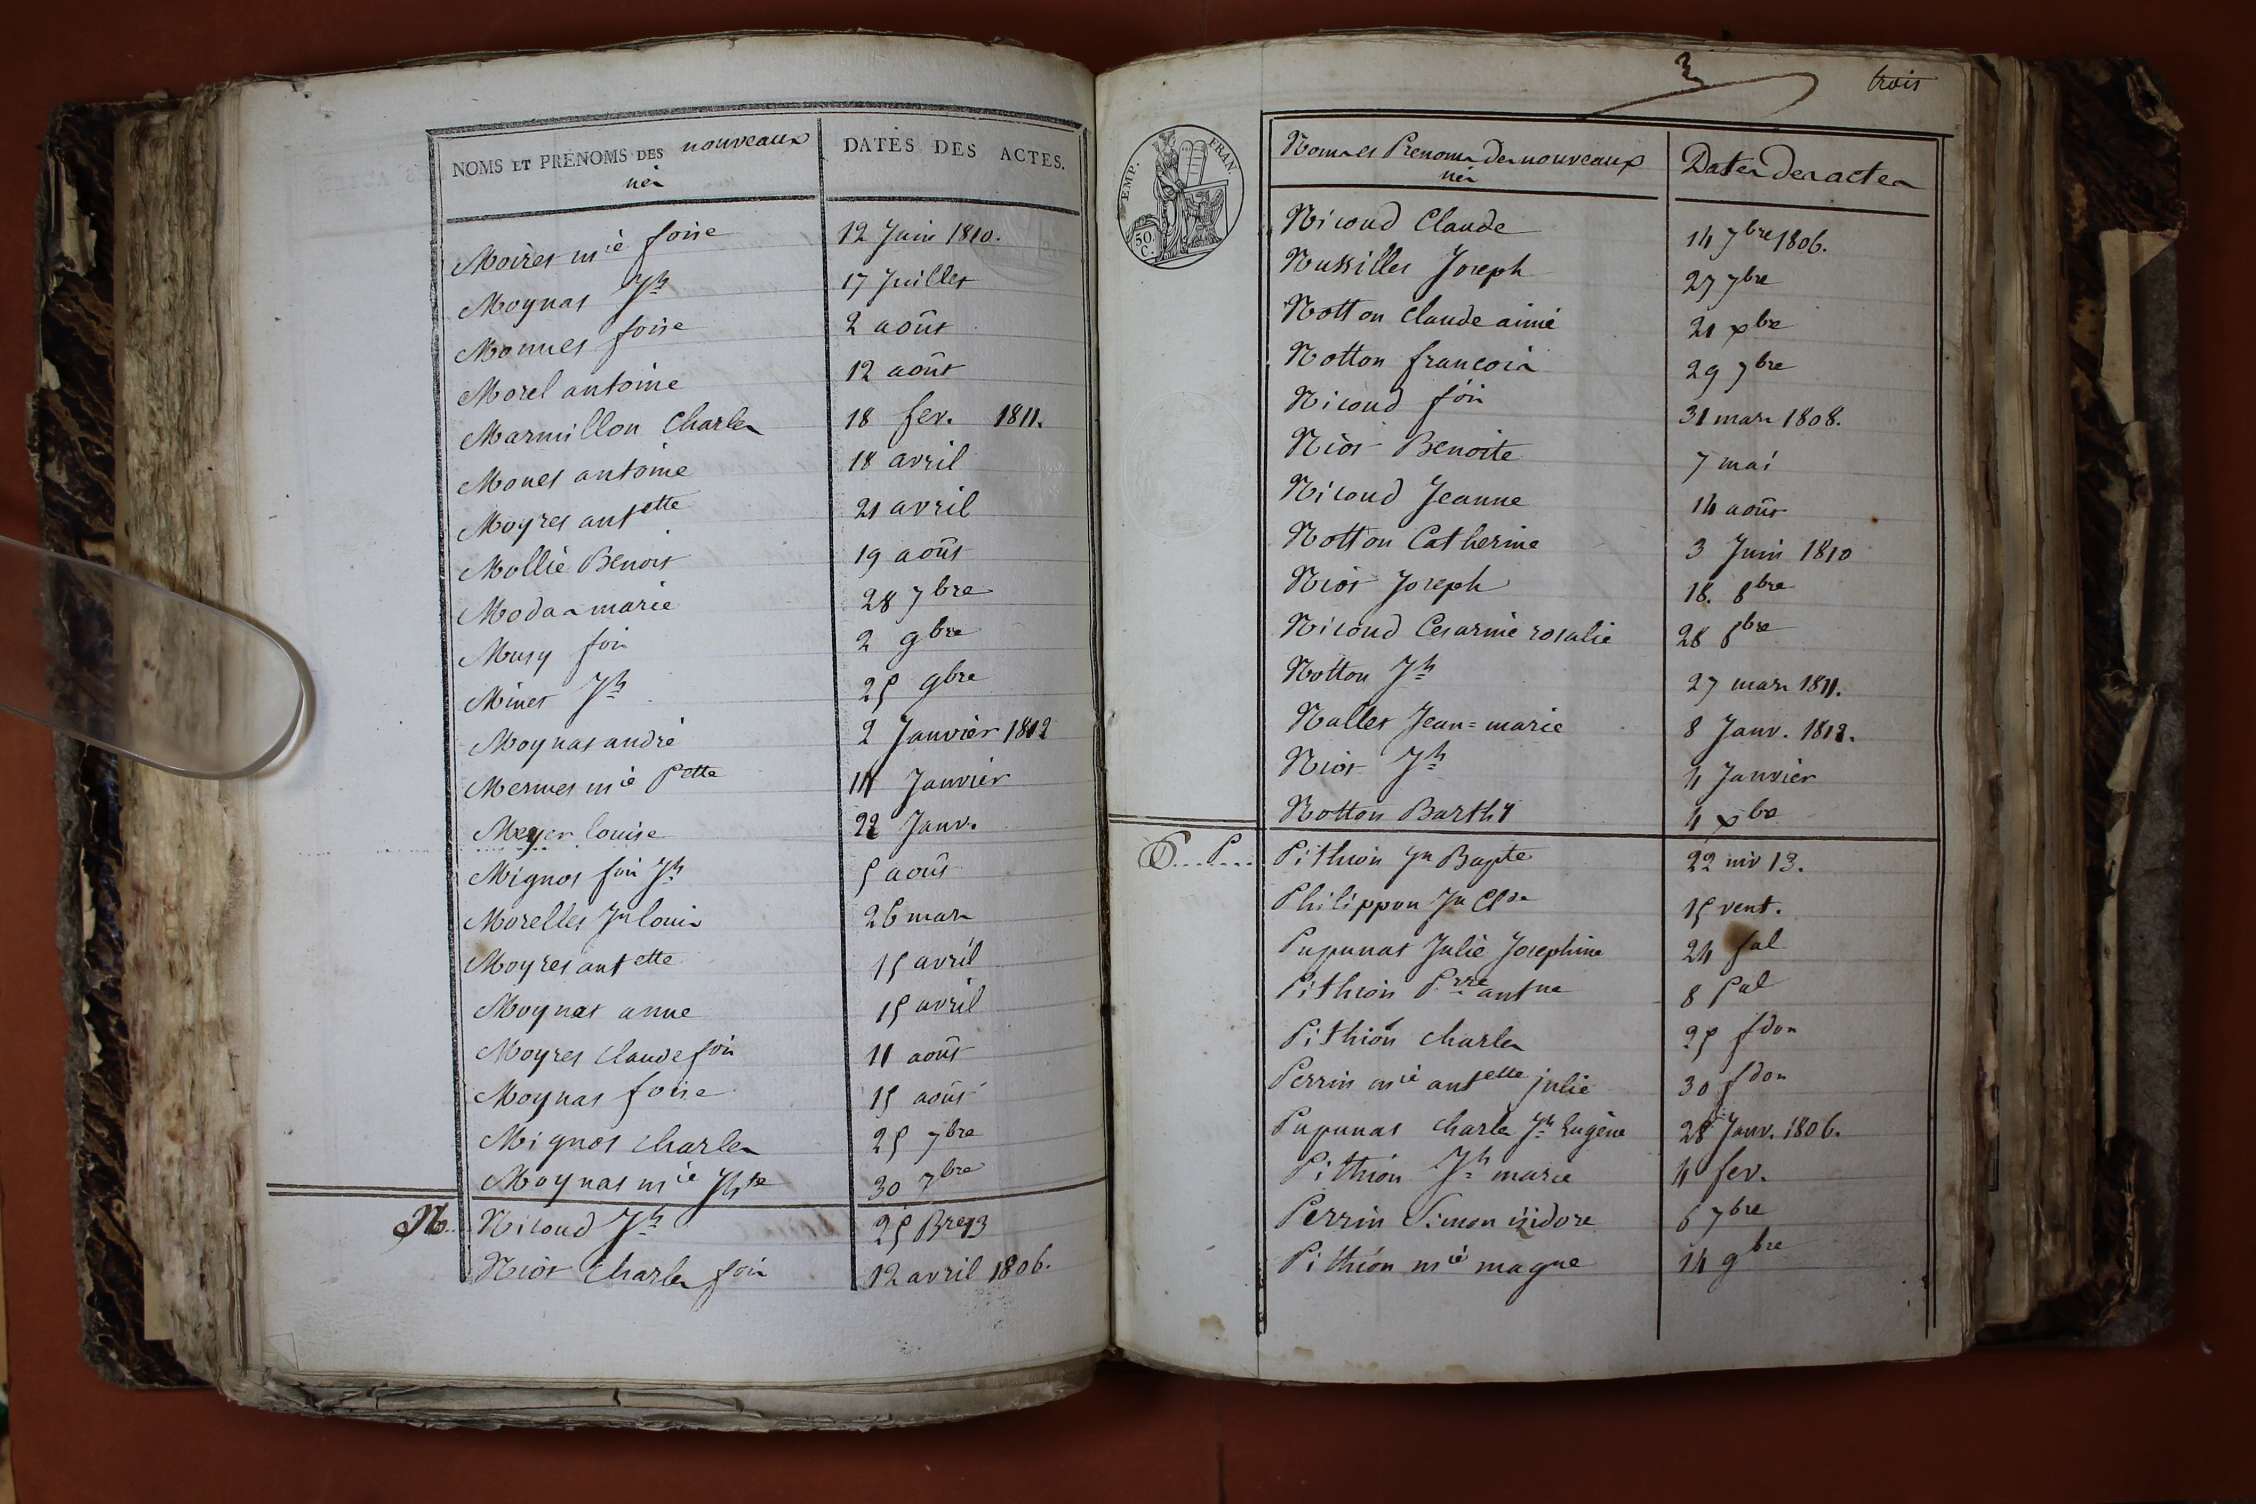 NOMS ET PRÉNOMS DES nouveaux nés DATES DES ACTES.
Moiret m.ie foise 12 Juin 1810.
Moynat Jh 17 Juillet
Monnet foise 2 août
Morel antoine 12 août
Marmillon Charles 18 fev. 1811.
Monet antoine 18 avril
Moyret antette 21 avril
Mollié Benoit 19 août
Modas marie 28 7bre
Musy fois 2 9bre
Minet Jh 25 9bre
Moynat andré 2 Janvier 1812
Mermet mie Pette 11 Janvier
Meyer louise 22 Janv.
Mignot fois Jh 5 août
Morellet Jn louis 26 mars
Moyret antette 15 avril
Moynat anne 15 avril
Moyret claude fois 11 août
Moynat foise 15 août
Mignot charles 25 7bre
Moynat mie Jhte 30 7bre
N. Nicoud Jh 25 Bre 13
Niot Charles fois 12 avril 1806.
3 trois
EMP. FRAN.
50. C.
Noms et Prenoms des nouveaux nés Dates des actes
Nicoud Claude 14 7bre 1806.
Joseph 27 7bre
Notton Claude aimé 21 xbre
Notton francois 29 7bre
Nicoud fois 31 mars 1808.
Niot Benoite 7 mai
Nicoud Jeanne 14 août
Notton Catherine 3 Juin 1810
Niot Joseph 18. 8bre
Nicoud Cesarine rosalie 28 8bre
Notton Jh 27 mars 1811.
Nallet Jean=marie 8 Janv. 1812.
Niot Jh 4 Janvier
Notton Barthy 4 xbre
P. Pithion Jn Bapte 22 niv 13.
Philippon Jn Cde 15 vent.
Pupunat Julie Josephine 24 fal
Pithion Prre antne 8 Pal
Pithion charles 25 fdor
Perrin mie antette julie 30 fdor
Pupunat charles Jh Eugène 28 Janv. 1806.
Pithion Jh marie 4 fev.
Perrin Simon isidore 6 7bre
Pithion mie magne 14 9bre